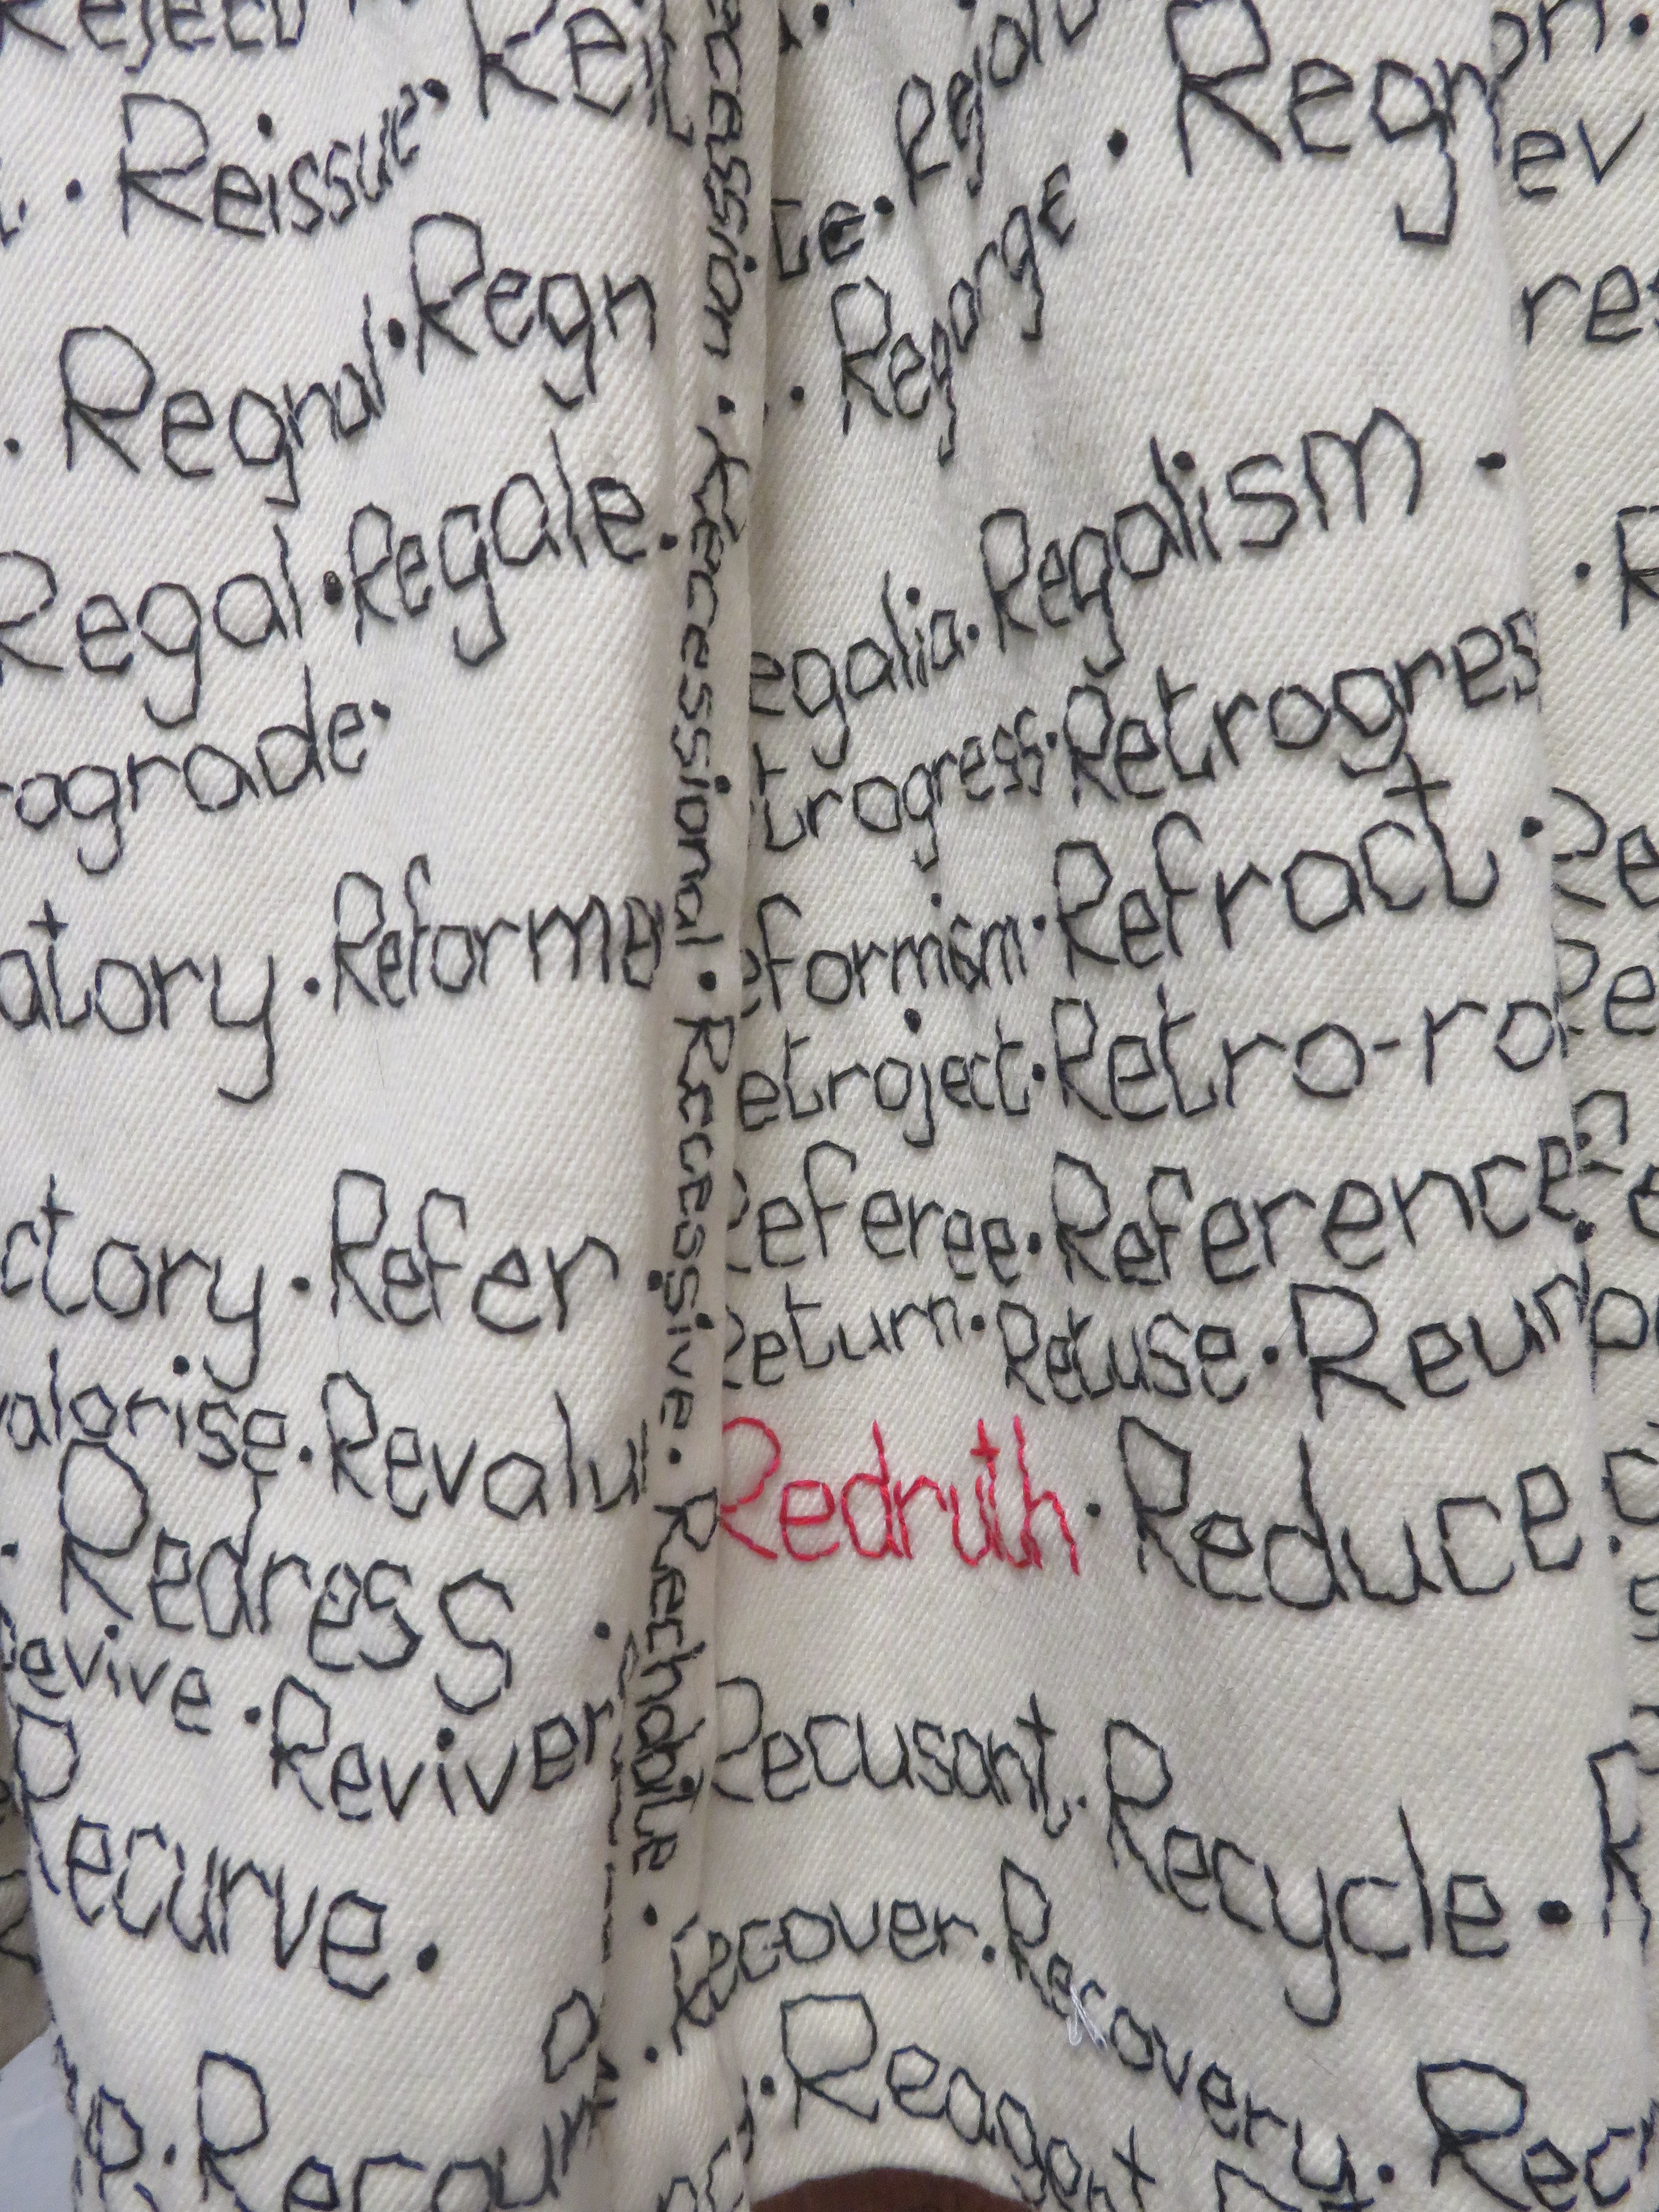 Reissue.
Regnal. Regn
Regal. Regale.
ograde.
atory. Reforma
ctory. Refer
alorise. Revalu
Redress.
Revive. Reviver
Recurve.
Recessional. Recessive. Rechabile.
. Regorge. Regn
egalia. Regalism.
trogress. Retrogres
eformism. Refract.
etroject. Retro-ro
Referee. Reference.
Return. Retuse. Reun
Redruth. Reduce.
Recusant. Recycle.
Recover. Recovery. Rec
. Reagent
ev
res